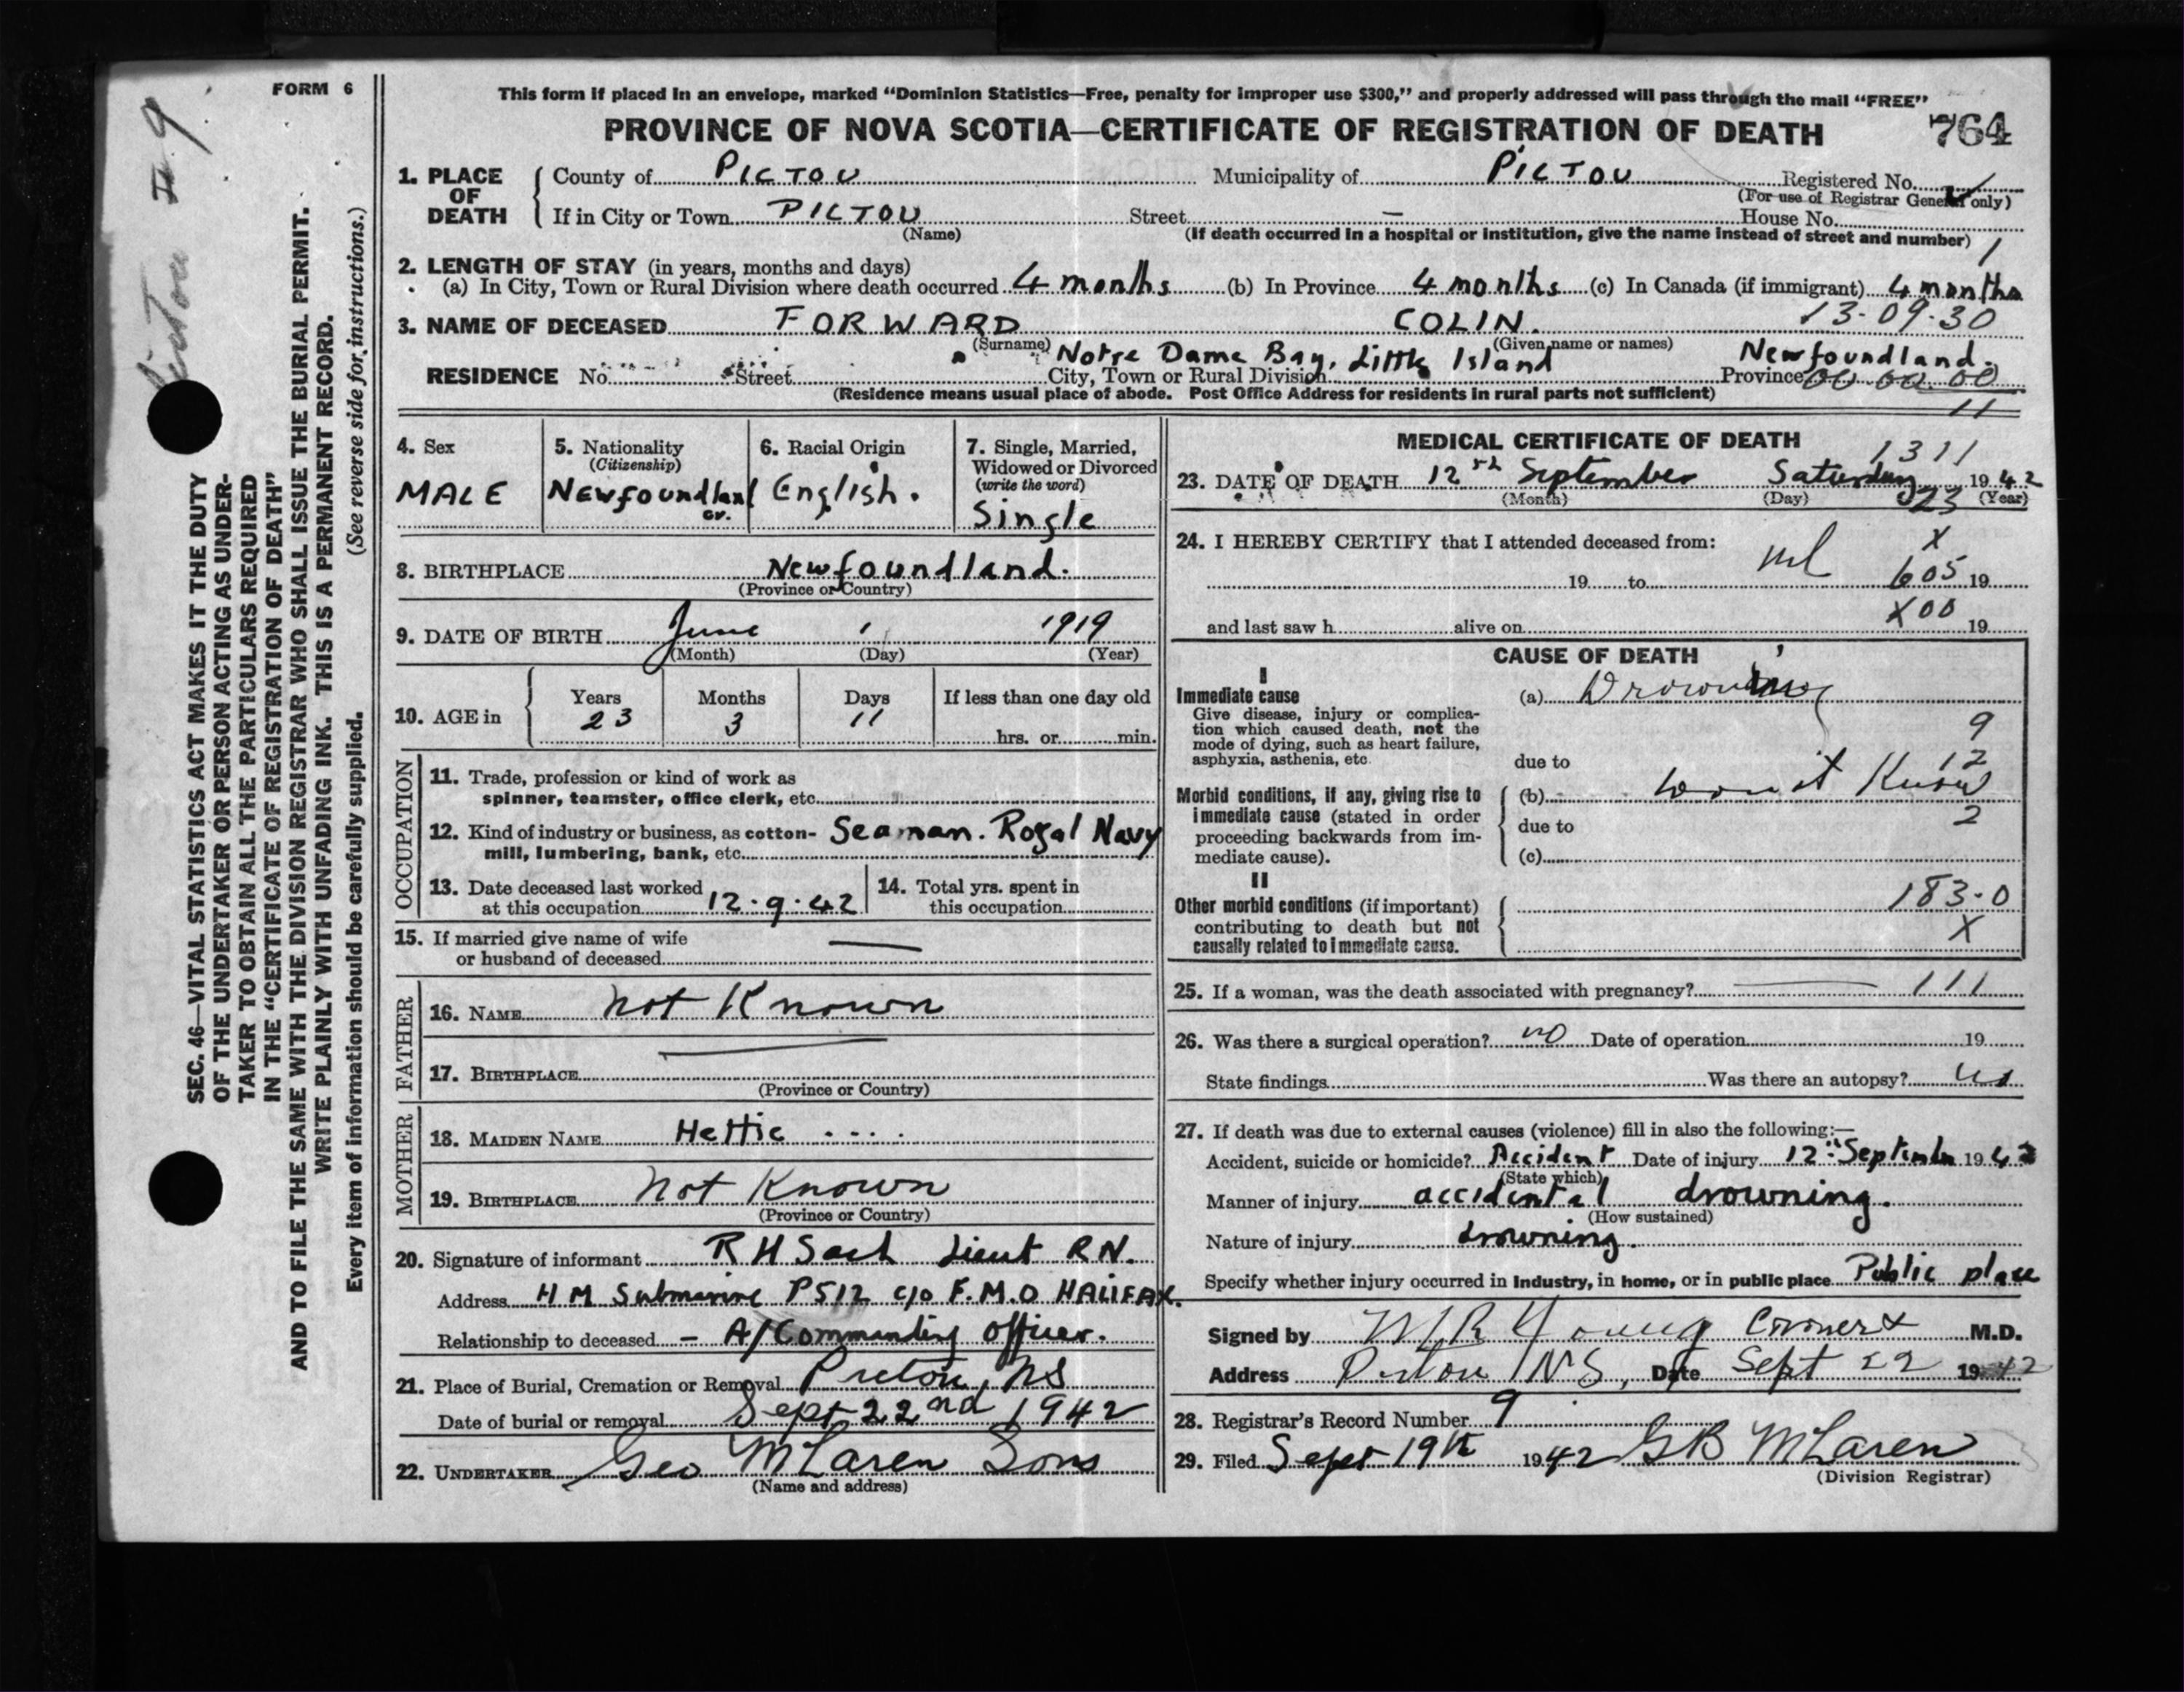 FORM 6
Pictou # 9
SEC. 46—VITAL STATISTICS ACT MAKES IT THE DUTY
OF THE UNDERTAKER OR PERSON ACTING AS UNDER-
TAKER TO OBTAIN ALL THE PARTICULARS REQUIRED
IN THE "CERTIFICATE OF REGISTRATION OF DEATH"
AND TO FILE THE SAME WITH THE DIVISION REGISTRAR WHO SHALL ISSUE THE BURIAL PERMIT.
WRITE PLAINLY WITH UNFADING INK. THIS IS A PERMANENT RECORD.
Every item of information should be carefully supplied. (See reverse side for instructions.)
This form if placed in an envelope, marked "Dominion Statistics—Free, penalty for improper use $300," and properly addressed will pass through the mail "FREE"
PROVINCE OF NOVA SCOTIA—CERTIFICATE OF REGISTRATION OF DEATH 764
1. PLACE OF DEATH County of PICTOU Municipality of PICTOU Registered No.
(For use of Registrar General only)
If in City or Town PICTOU Street — House No.
(Name) (If death occurred in a hospital or institution, give the name instead of street and number) 1
2. LENGTH OF STAY (in years, months and days)
(a) In City, Town or Rural Division where death occurred 4 months (b) In Province 4 months (c) In Canada (if immigrant) 4 months
3. NAME OF DECEASED FORWARD COLIN. 13-09-30
(Surname) (Given name or names)
Notre Dame Bay, Little Island Newfoundland.
RESIDENCE No. Street City, Town or Rural Division Province 00-00-00
(Residence means usual place of abode. Post Office Address for residents in rural parts not sufficient)
11
4. Sex
MALE
5. Nationality
(Citizenship)
Newfoundland
er.
6. Racial Origin
English.
7. Single, Married,
Widowed or Divorced
(write the word)
Single
8. BIRTHPLACE Newfoundland.
(Province or Country)
9. DATE OF BIRTH June 1 1919
(Month) (Day) (Year)
10. AGE in Years Months Days If less than one day old
23 3 11 hrs. or min.
OCCUPATION
11. Trade, profession or kind of work as
spinner, teamster, office clerk, etc.
12. Kind of industry or business, as cotton-
mill, lumbering, bank, etc. Seaman. Royal Navy
13. Date deceased last worked
at this occupation 12.9.42
14. Total yrs. spent in
this occupation
15. If married give name of wife
or husband of deceased —
FATHER
16. NAME not Known
17. BIRTHPLACE
(Province or Country)
MOTHER
18. MAIDEN NAME Hettie ....
19. BIRTHPLACE not Known
(Province or Country)
20. Signature of informant R H Lieut RN.
Address H M Submarine P512 c/o F.M.O HALIFAX.
Relationship to deceased — A/Commanding Officer.
21. Place of Burial, Cremation or Removal Pictou, NS
Date of burial or removal Sept 22nd 1942
22. UNDERTAKER Geo McLaren Sons
(Name and address)
MEDICAL CERTIFICATE OF DEATH
1311
23. DATE OF DEATH 12th September Saturday 1942
(Month) (Day) (Year)
23
24. I HEREBY CERTIFY that I attended deceased from: X
19 to 605 19
X00
and last saw h alive on 19
CAUSE OF DEATH
I
Immediate cause (a) Drowning
Give disease, injury or complica-
tion which caused death, not the
mode of dying, such as heart failure,
asphyxia, asthenia, etc.
9
12
due to
Morbid conditions, if any, giving rise to
immediate cause (stated in order
proceeding backwards from im-
mediate cause).
(b) Know
2
due to
(c)
II
Other morbid conditions (if important)
contributing to death but not
causally related to immediate cause.
183-0
X
25. If a woman, was the death associated with pregnancy? — 111
26. Was there a surgical operation? no Date of operation 19
State findings Was there an autopsy?
27. If death was due to external causes (violence) fill in also the following:—
Accident, suicide or homicide? Accident Date of injury 12th September 1942
(State which)
Manner of injury accidental drowning.
(How sustained)
Nature of injury drowning.
Specify whether injury occurred in industry, in home, or in public place Public place
Signed by M R Young Coroner M.D.
Address Pictou N S, Date Sept 22 1942
28. Registrar's Record Number 9
29. Filed Sept 19th 1942 GB McLaren
(Division Registrar)